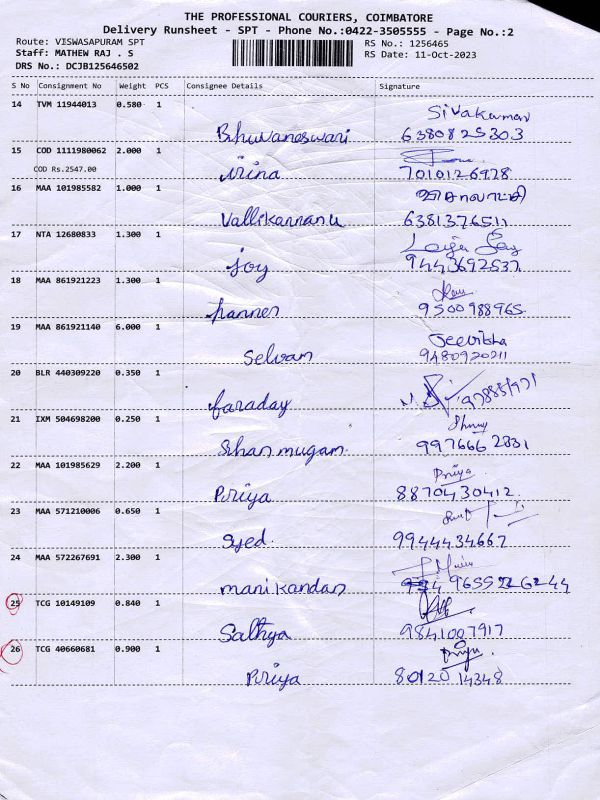 THE PROFESSIONAL COURIERS, COIMBATORE
Delivery Runsheet - SPT - Phone No.:0422-3505555 - Page No.:2
Route: VISWASAPURAM SPT RS No.: 1256465
Staff: MATHEW RAJ . S RS Date: 11-Oct-2023
DRS No.: DCJB125646502
S No Consignment No Weight PCS Consignee Details Signature
14 TVM 11944013 0.580 1 Sivakumar
Bhuvaneswari 6380825303
15 COD 1111980062 2.000 1
COD Rs.2547.00 irina 7010126978
16 MAA 101985582 1.000 1
Vallikannanu 6381376511
17 NTA 12680833 1.300 1
joy 9443692537
18 MAA 861921223 1.300 1
hanner 9500988965
19 MAA 861921140 6.000 1 Jeevibha
Selvam 9480920211
20 BLR 440309220 0.350 1
faraday
21 IXM 504698200 0.250 1
Shanmugam 9976662831
22 MAA 101985629 2.200 1 Priya
Priya 8870430412
23 MAA 571210006 0.650 1
Syed 9944434667
24 MAA 572267691 2.300 1
manikandan
25 TCG 10149109 0.840 1
Sathya 9841007917
26 TCG 40660681 0.900 1 Priya
Priya 8012014348